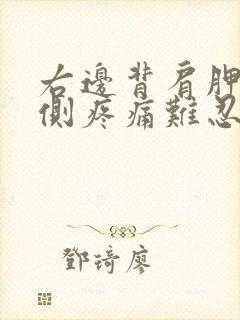 右邊背肩胛
側疼痛難忍
鄧琦廖